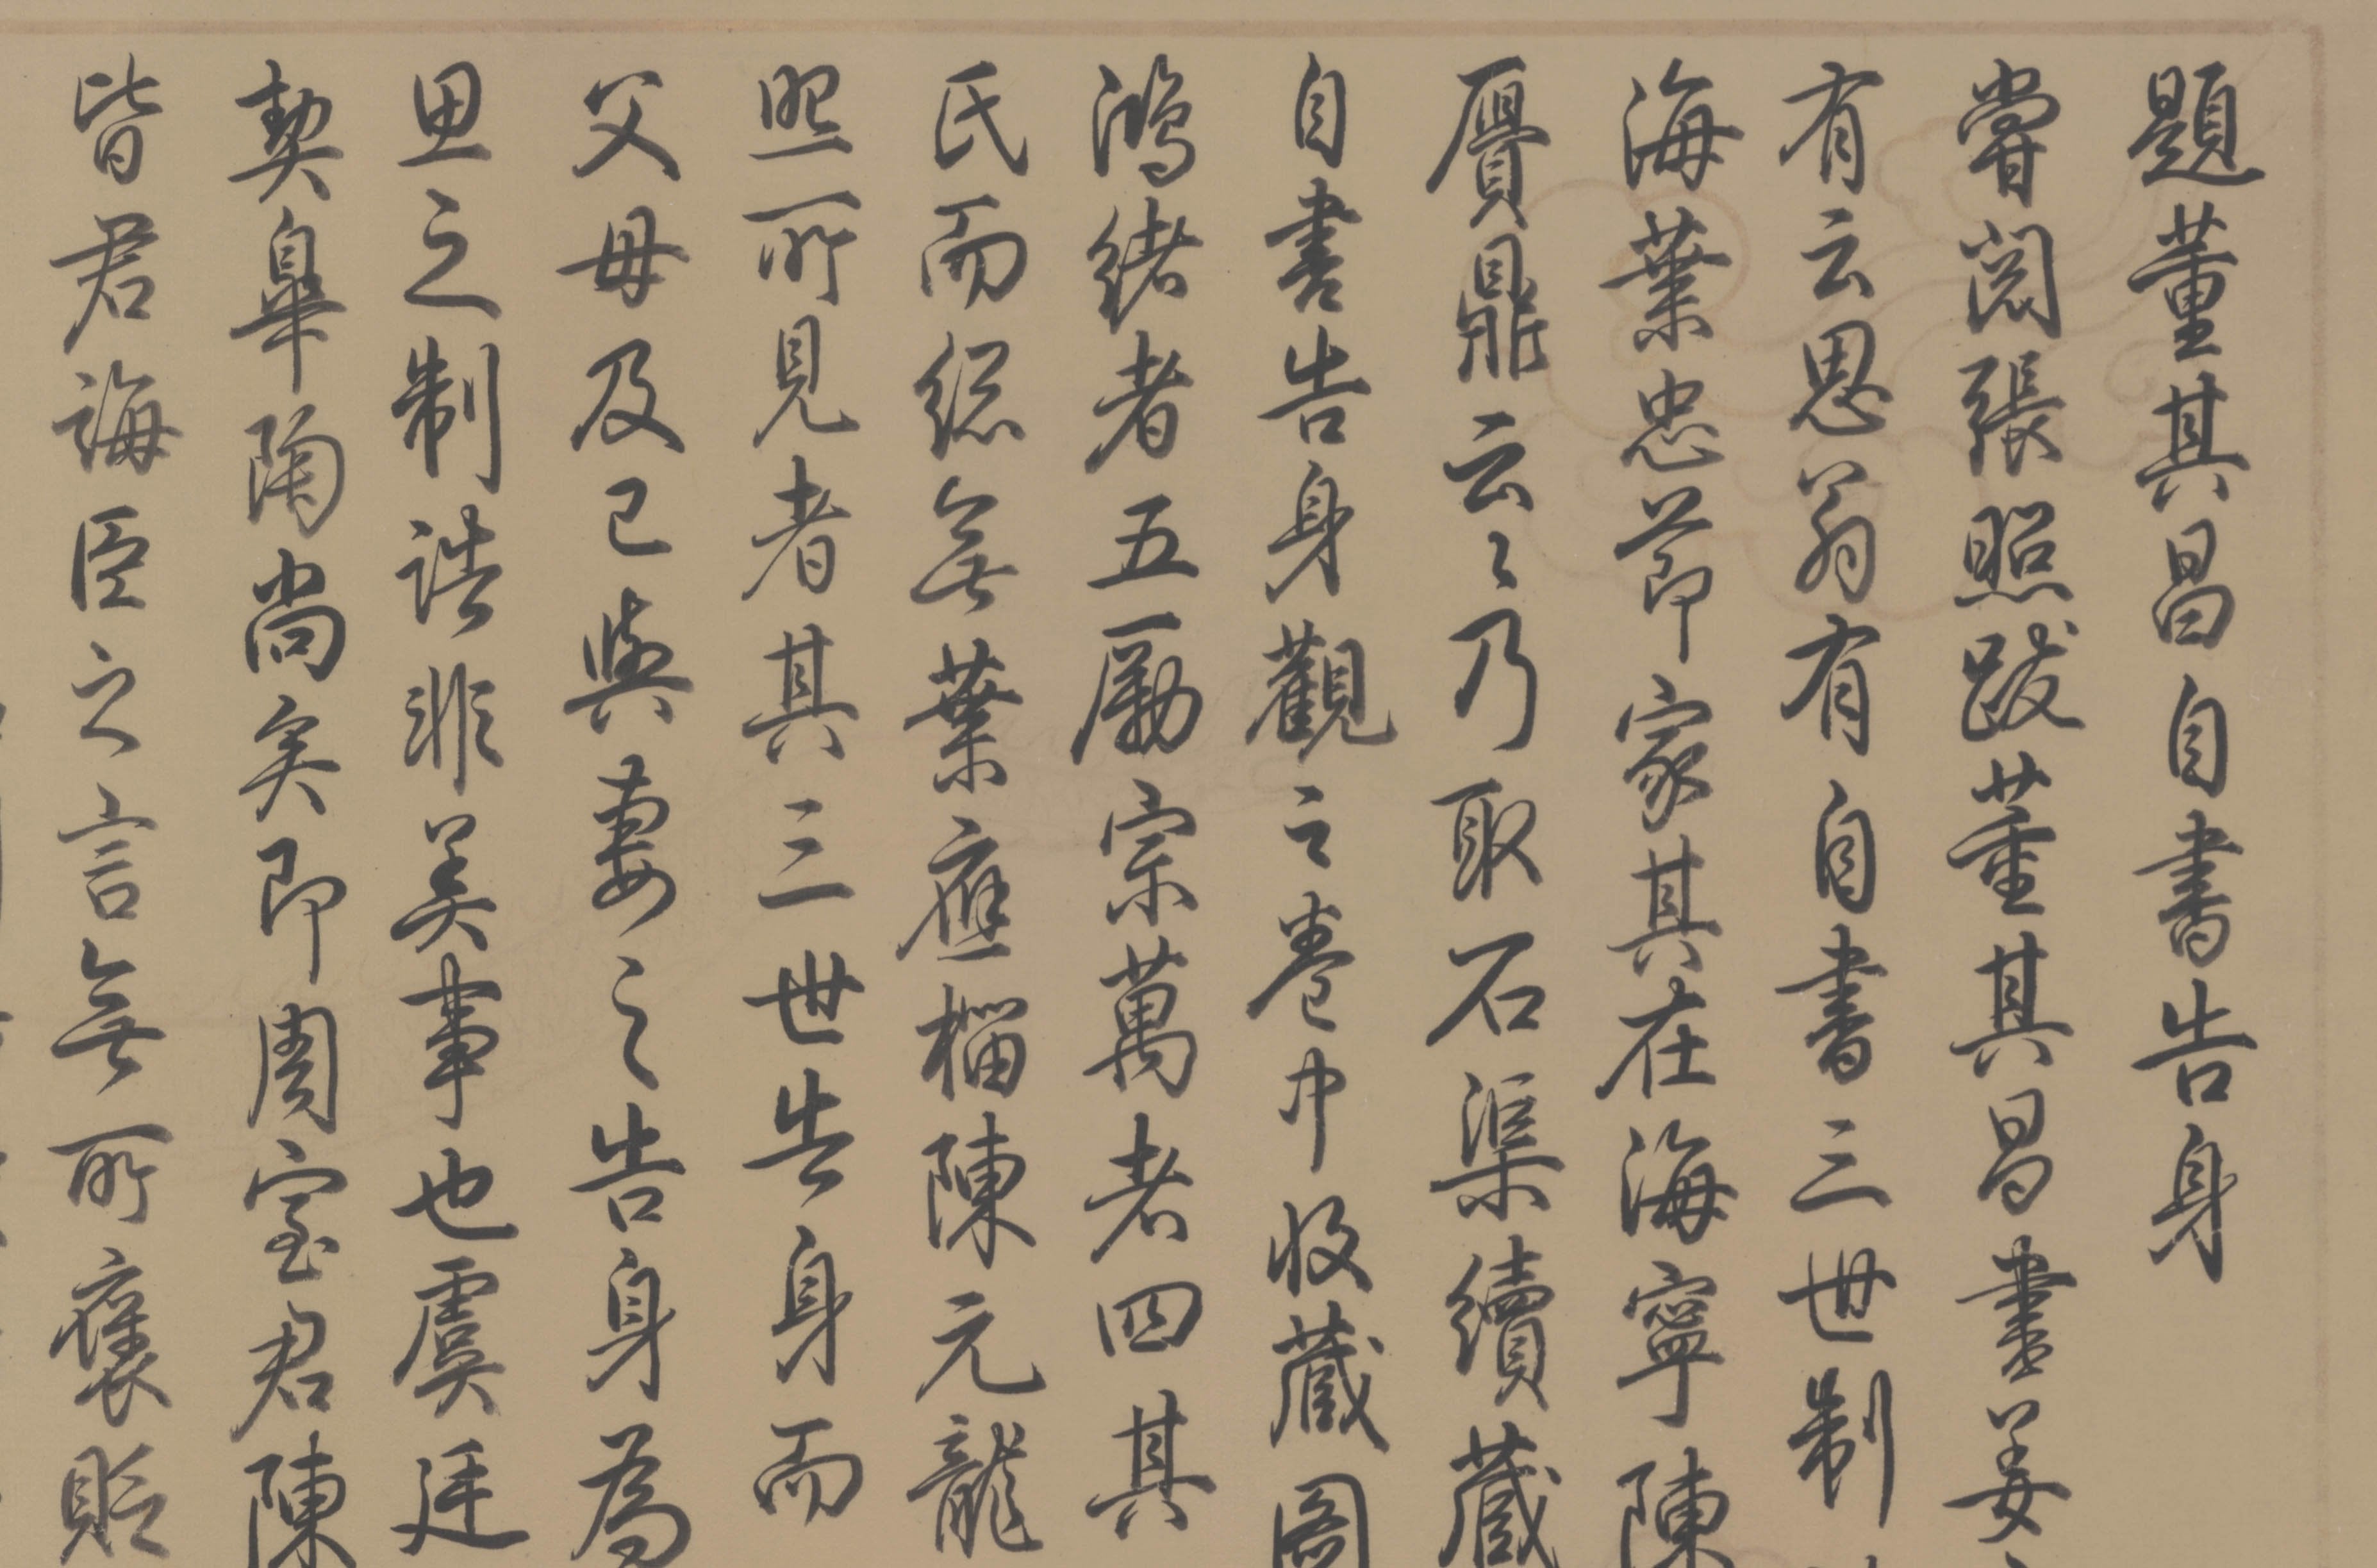 題董其昌自書告身
嘗閱張照跋董其昌書姜
有云思翁有自書三世制
海葉忠節家其在海寧陳
贗鼎云〻乃取石渠續藏
自書告身觀之卷中收藏圖
鴻緒者五勵宗萬者四其
氏而總無葉應榴陳元龍
照所見者其三世告身而
父母及己與妻之告身為
思之制誥非美事也虞廷
契皋陶尚矣即周室君陳
皆君誨臣之言無所褒貶